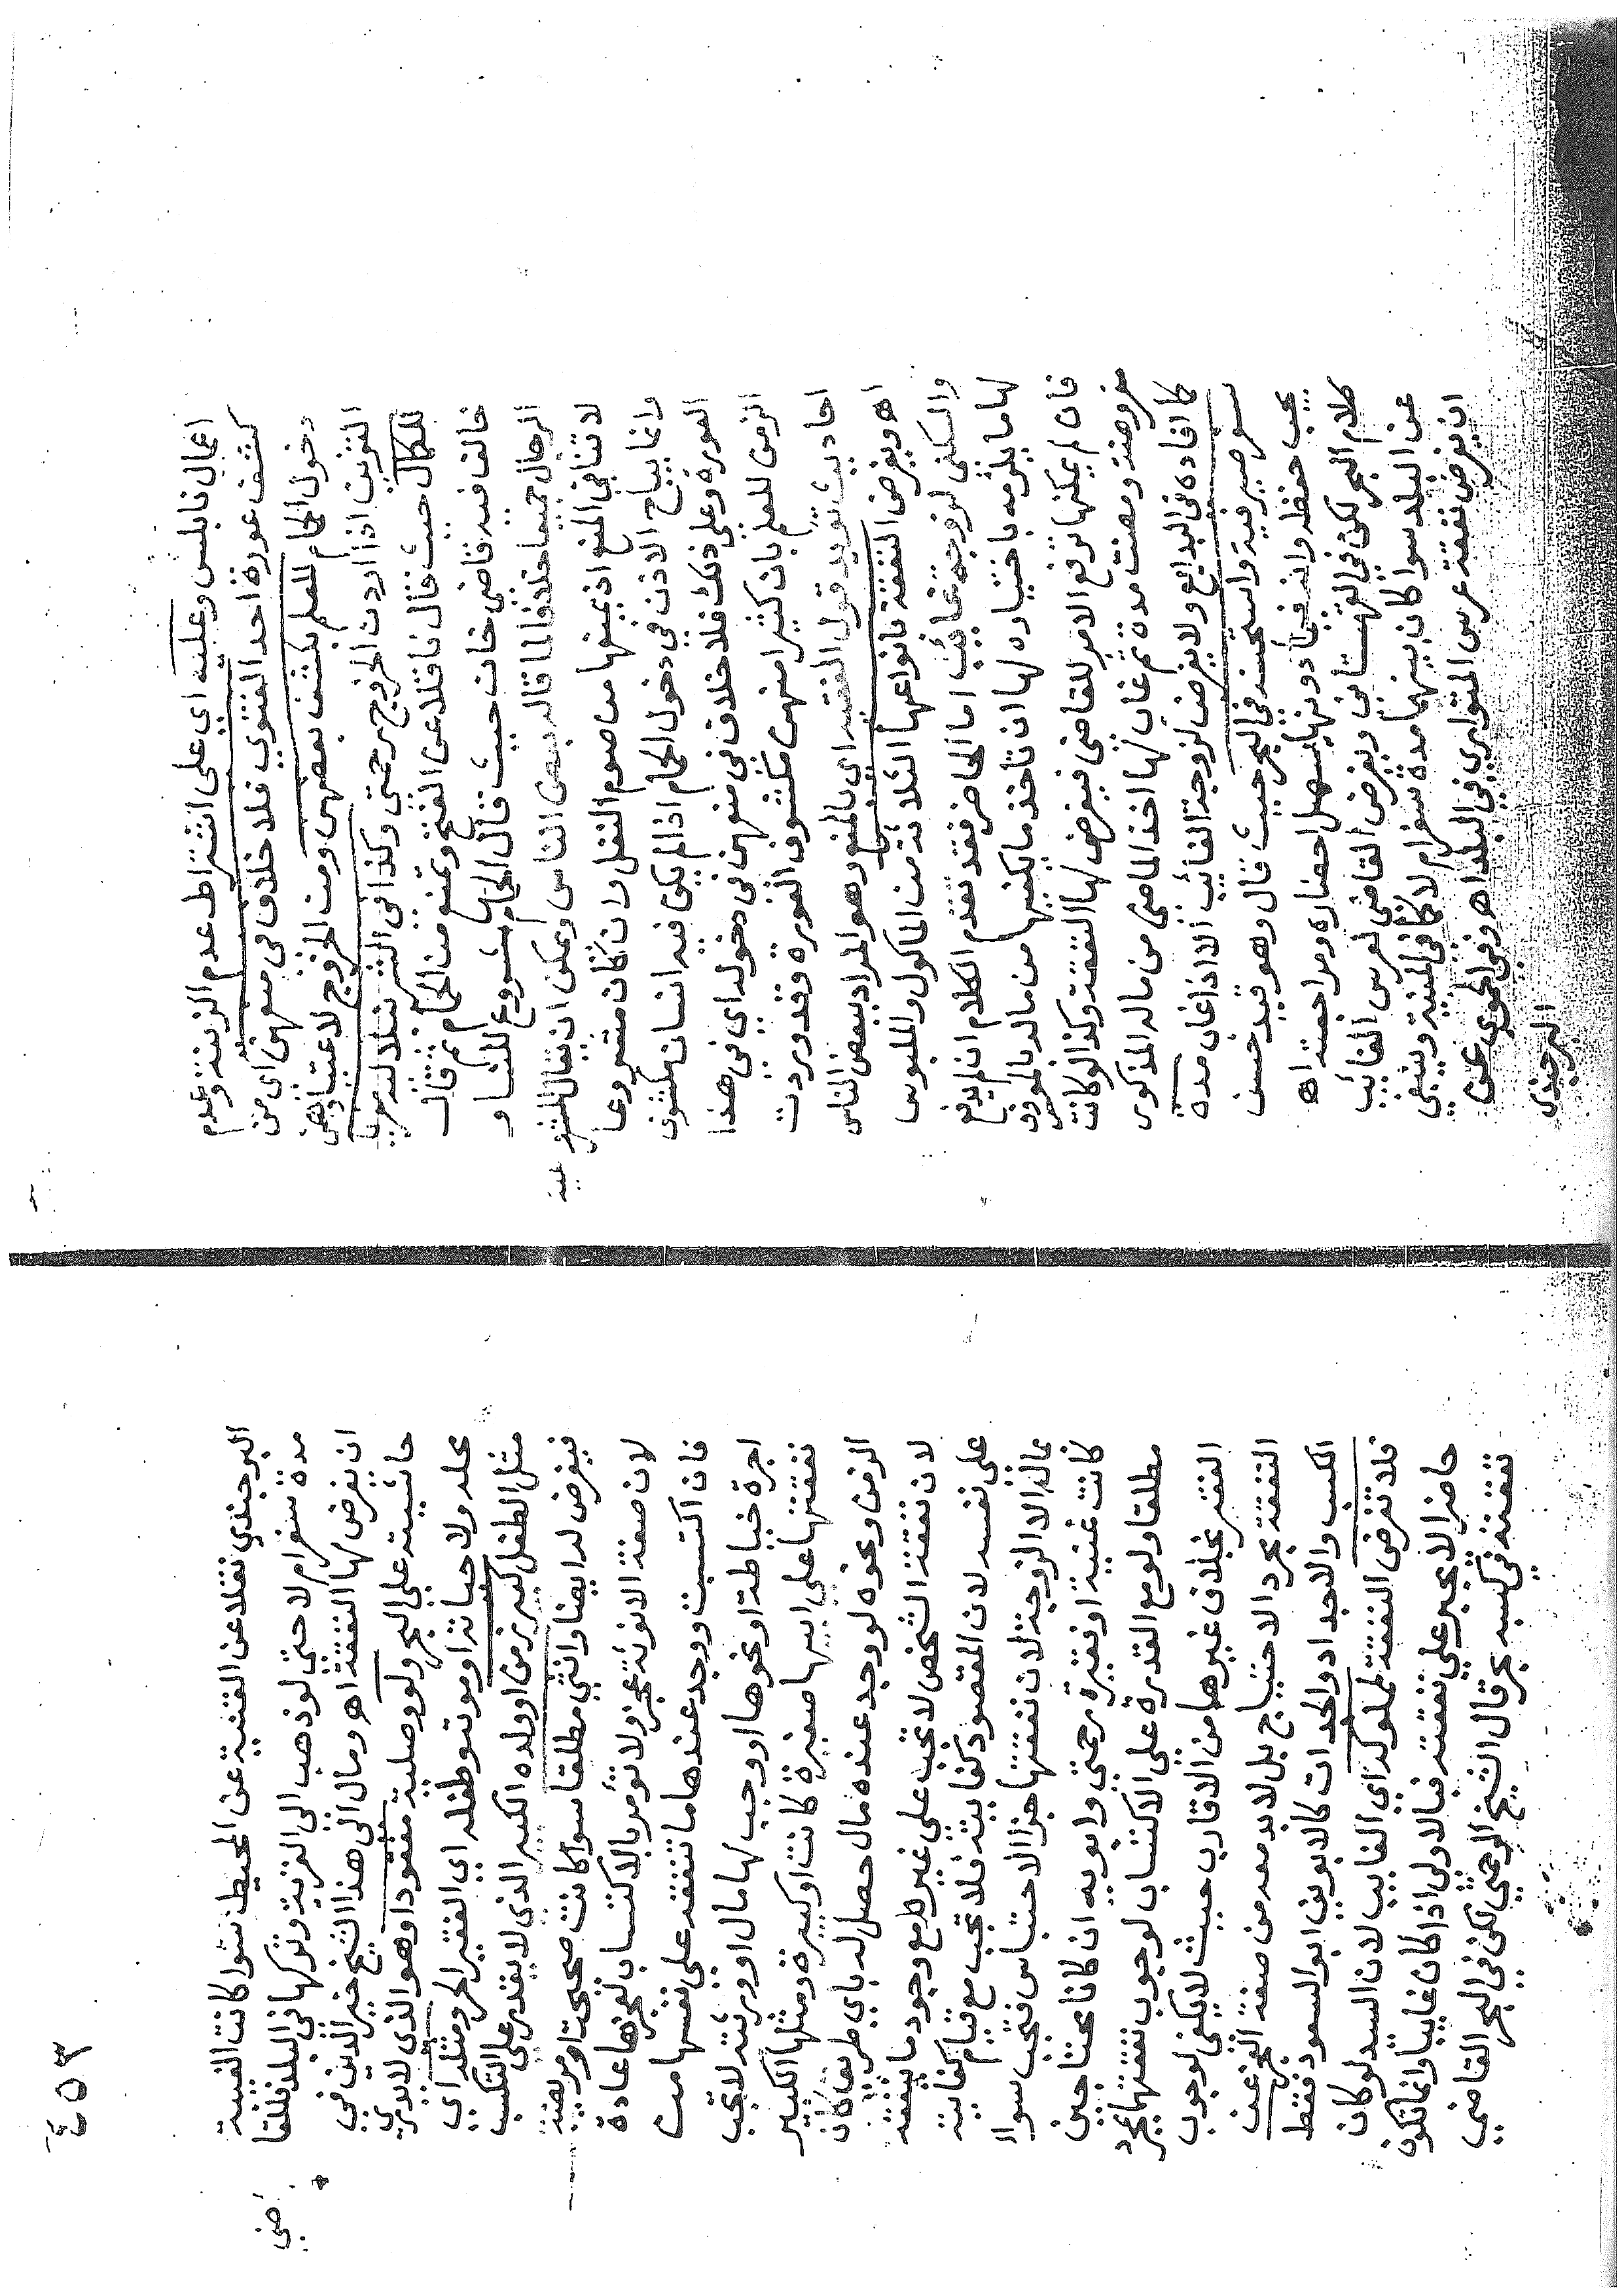 اعمال نابلس وعليه اي على اشتراط عدم الزينة وعدم
كشف عورة احد الفتوي فلا خلاف في منعهن اي من
دخول الحمام للعلم بكشف بعضهن ومن الخروج لاعتيادهن
التزين اذا اردن الخروج رحمتي وكذا في الشرنبلالية معزيا
للكمال حيث قال ناقلا عن الفتح وتمنع من الحمام ثم قال
خالف فيه قاضي خان حيث قال الحمام مشروع للنسا و
الرجال جميعا خلافا لما قاله بعض الناس ويمكن ان يقال المشروعية
لا تنافي المنع اذ يمنعها من صوم النفل وان كان مشروعا
وانما يباح الاذن في دخول الحمام اذا لم يكن فيه انسان مكشوف
العورة وعلي ذلك فلا خلاف في منعهن في دخوله اي في هذا
الزمن للعلم بان كثيرا منهن مكشوف العورة وقد وردت
احاديث تويد قول الفقيه اي بالمنع وهو المراد ببعض الناس
اه ويفرض النفقة بانواعها الثلاثة من الماكول والملبوس
والسكني لزوجة غائب اما الحاضر فقد تقدم الكلام ان لم يدفع
لها ما يلزمه باختياره لها ان تأخذ ما يكفيها من ماله بالمعروف
فان لم يمكنها ترفع الامر للقاضي فيفرض لها النفقة وكذا لو كانت
مفروضة ومضت مدة ثم غاب لها اخذ الماضي من ماله المذكور
كما افاده في البدايع ولا يفرض لزوجة الغائب الا اذا غاب مدة
سفر صيرفية واستحسنه في البحر حيث قال وهو قيد حسن
يجب حفظه وانه فيما دونها يسهل احضاره ومراجعته اه
كلام البحر لكن في القهستاني ويفرض القاضي لعرس الغائب
عن البلد سوا كان بينهما مدة سفر ام لا كما في المنية وينبغي
ان يفرض نفقة عرس المتواري في البلد اه وفي الحموي عن
البرجندي
٤٥٣
البرجندي نقلا عن القنية عن المحيط سوا كانت الغيبة
مدة سفر ام لا حتي لو ذهب الي القرية وتركها في البلد فللقاضي
ان يفرض لها النفقة اه ومال الي هذا الشيخ خير الدين في
حاشيته علي البحر ولو وصلية مفقودا وهو الذي لا يدري
محله ولا حياته او موته وطفله اي الفقير الحر ومثله اي
مثل الطفل كبير زمن او ولده الكبير الذي لا يقدر علي التكسب
فيفرض له ايضا وانثي مطلقا سوا كانت صحيحة او مريضة
لان صفة الانوثة عجز ولا تؤمر بالاكتساب لعجزها عادة
فان اكتسبت ووجد عندها ما تنفقه علي نفسها من
اجرة خياطة او نحوها او وجب لها مال او ورثته لا تجب
نفقتها علي ابيها صغيرة كانت او كبيرة ومثلها الكبير
الزمن ونحوه لو وجد عنده مال حصل له باي طريق كان
لان نفقة الشخص لا تجب على غيره مع وجود ما ينفقه
على نفسه لان المقصود كفايته فلا تجب مع قيام كفاية
بماله الا الزوجة لان نفقتها جزا الاحتباس فتجب سوا
كانت غنية او فقيرة رحمتي وابويه ان كانا محتاجين
مطلقا ولو مع القدرة علي الاكتساب لوجوب نفقتهما بمجرد
الفقر بخلاف غيرهما من الاقارب حيث لا يكفي لوجوب
النفقة مجرد الاحتياج بل لا بد معه من صفة العجز عن
الكسب والاجداد والجدات كالابوين ابو السعود فقط
فلا تفرض النفقة لمملوكه اي الغايب لان السيد لو كان
حاضرا لا يجبر علي نفقته فبالاولى اذا كان غايبا وانما تكون
نفقته في كسبه بحر قال الشيخ الرحمتي لكن في البحر القاضي